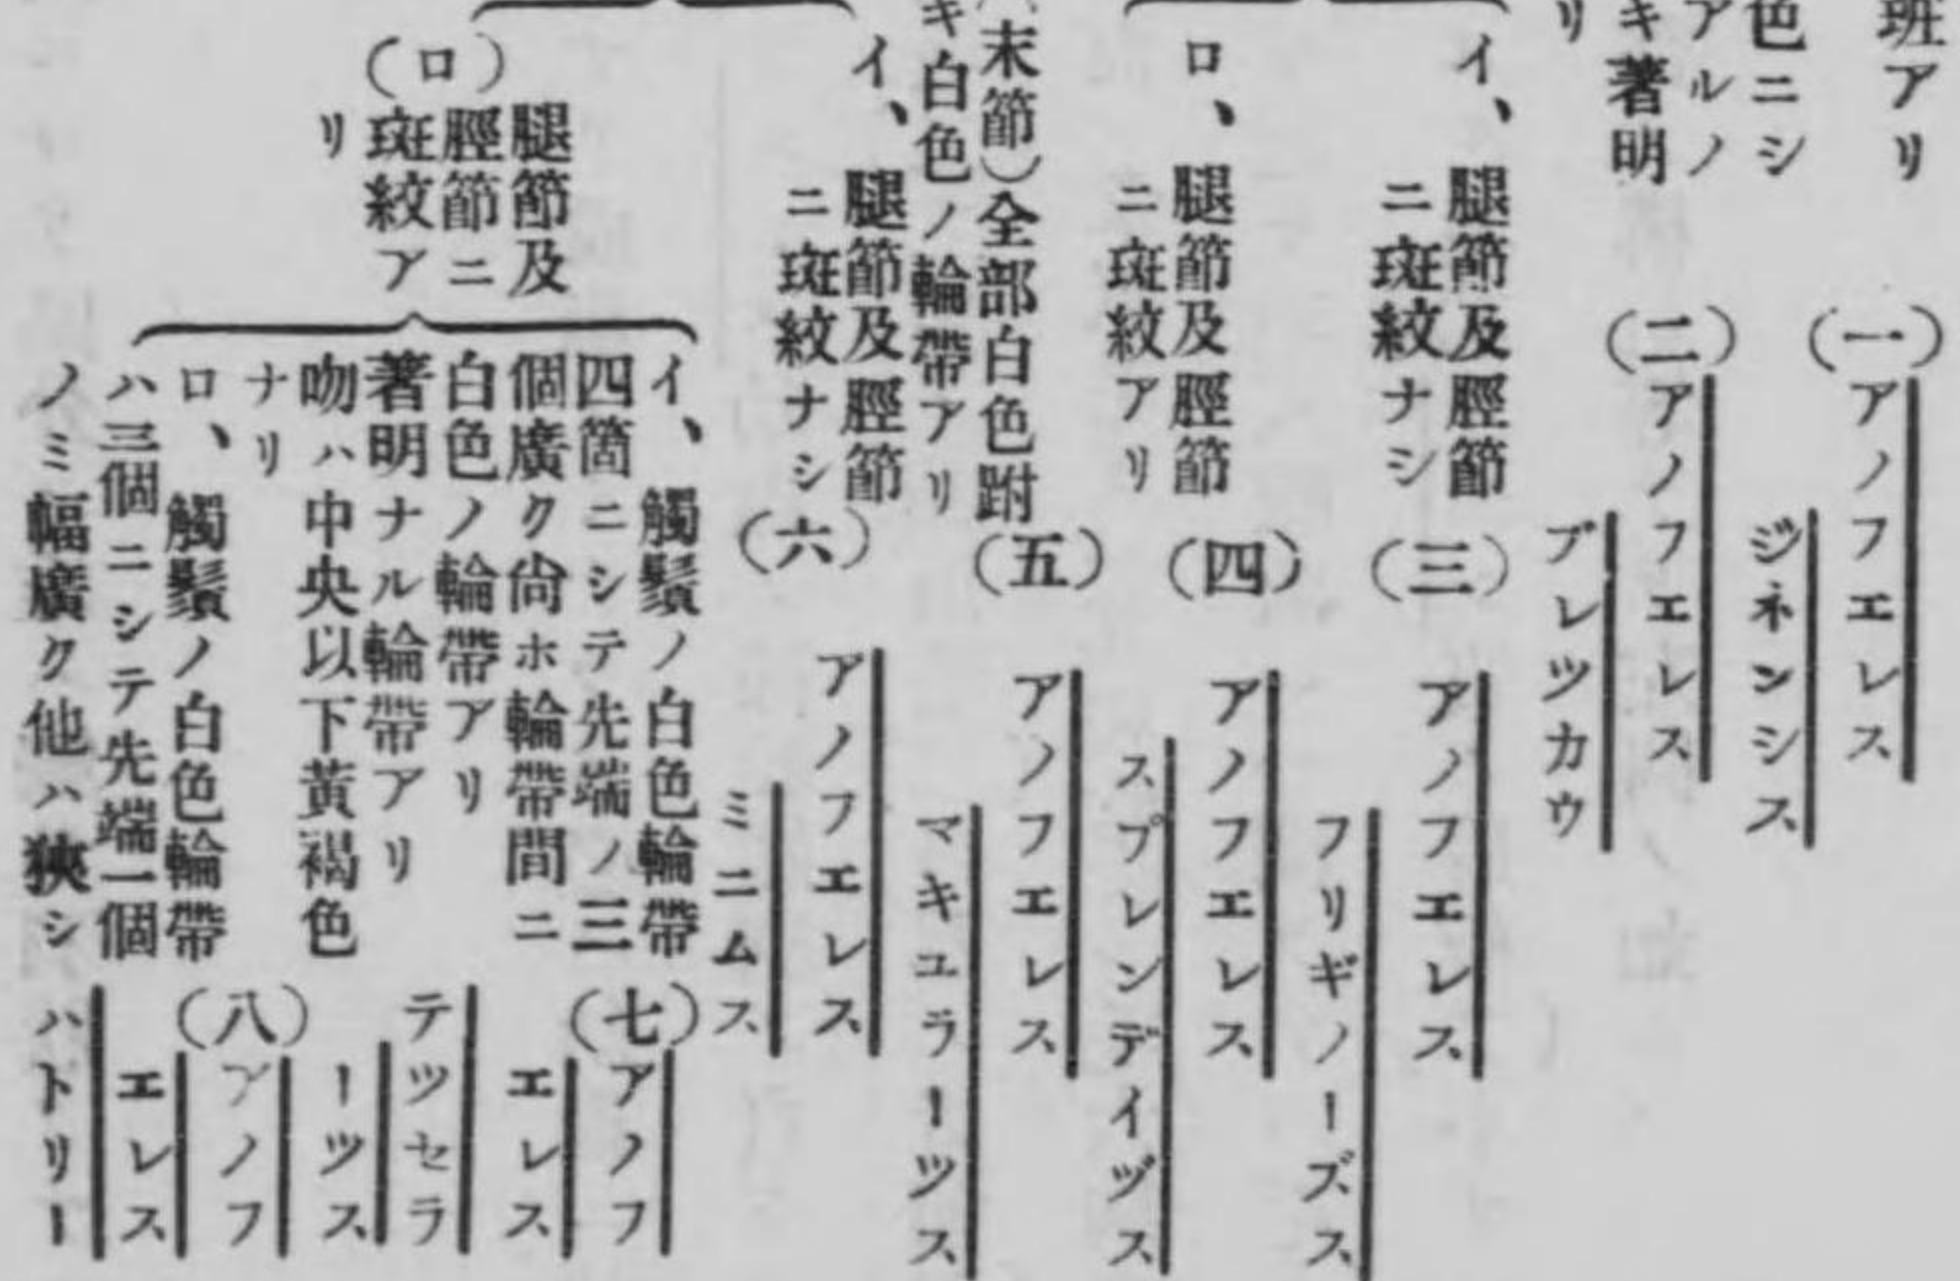 班アリ
(一)アノフエレス
ジネンシス
色ニシ
アルノ
キ著明
リ
(二)アノフエレス
プレツカウ
イ、腿節及脛節
ニ斑紋ナシ
(三)アノフエレス
フリギノーズス
ロ、腿節及脛節
ニ斑紋アリ
(四)アノフエレス
スプレンデイヅス
(末節)全部白色跗
キ白色ノ輪帶アリ
(五)アノフエレス
マキユラーツス
イ、腿節及脛節
ニ斑紋ナシ
(六)アノフエレス
ミニムス
(ロ)
腿節及
脛節ニ
斑紋ア
リ
イ、觸鬚ノ白色輪帶
四箇ニシテ先端ノ三
個廣ク尙ホ輪帶間ニ
白色ノ輪帶アリ
著明ナル輪帶アリ
吻ハ中央以下黃褐色
ナリ
(七)アノフ
エレス
テツセラ
ーツス
ロ、觸鬚ノ白色輪帶
ハ三個ニシテ先端一個
ノミ幅廣ク他ハ狹シ
(八)アノフ
エレス
ハトリー